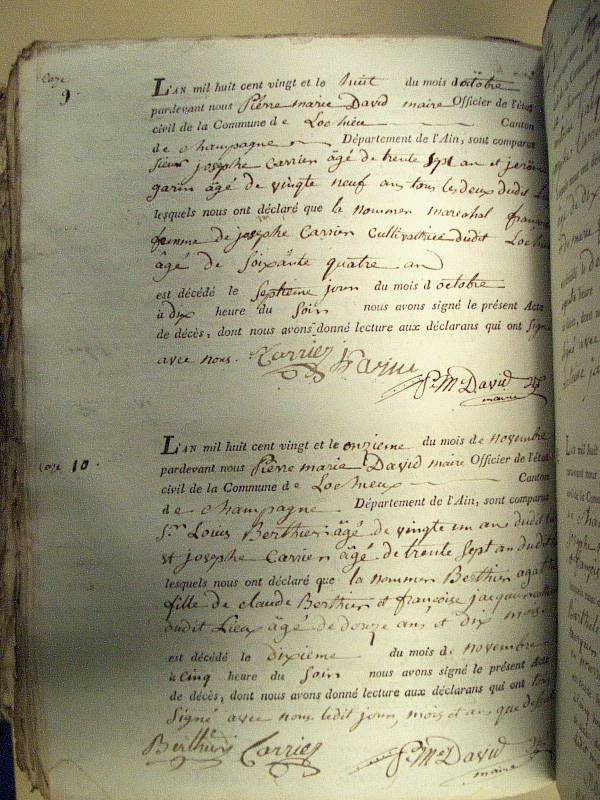 9.
L'AN mil huit cent vingt et le huit du mois d'octobre
pardevant nous Pierre marie David maire Officier de l'état
civil de la Commune de Lochieu Canton
de champagne Département de l'Ain, sont comparus
sieur josephe Carrier âgé de trente sept an et jerôme
garin âgé de vingte neuf ans tous les deux dudit
lesquels nous ont déclaré que la nommen marechal françoise
femme de josephe Carrier Cultivatrice dudit Lochieu
âgé de soixante quatre an
est décédé le septieme jour du mois d'octobre
à dix heure du soir nous avons signé le présent Acte
de décès, dont nous avons donné lecture aux déclarans qui ont signé
avec nous. Carrier garin
P. M. David
maire
10.
L'AN mil huit cent vingt et le onzieme du mois de novembre
pardevant nous Pierre marie David maire Officier de l'état
civil de la Commune de Lochieux Canton
de champagne Département de l'Ain, sont comparus
sr. Louis Berthier âgé de vingte un an dudit
et josephe Carrier âgé de trente sept an dudit
lesquels nous ont déclaré que la nommen Berthier
fille de claude Berthier et françoise
dudit Lieux âgé de douze ans et dix mois
est décédé le dixieme du mois de novembre
à cinq heure du soir nous avons signé le présent Acte
de décès, dont nous avons donné lecture aux déclarans qui ont tous
signé avec nous ledit jour, mois et an que dessus
Berthier Carrier P. M. David
maire